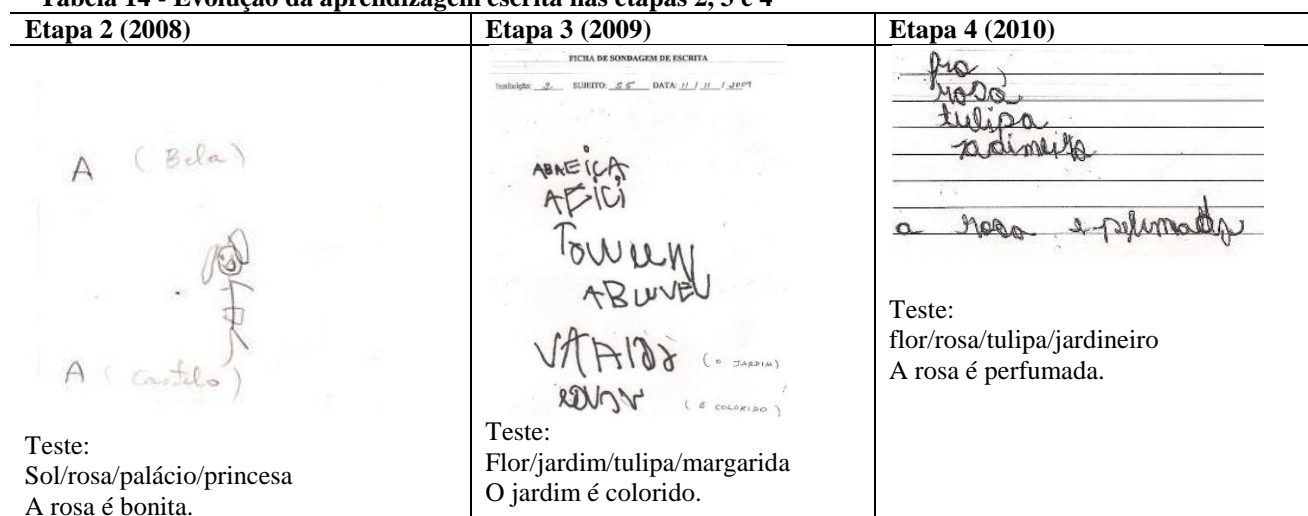 Tabela 14 - Evolução da aprendizagem escrita nas etapas 2, 3 e 4
Etapa 2 (2008)
A (Bela)
A (Castelo)
Teste:
Sol/rosa/palácio/princesa
A rosa é bonita.
Etapa 3 (2009)
FICHA DE SONDAGEM DE ESCRITA
Instituição: 2 SUJEITO: S5 DATA: 11 / 11 / 2009
ABAEIÇA
AEICI
ABUUVEU
(O JARDIM)
(É COLORIDO)
Teste:
Flor/jardim/tulipa/margarida
O jardim é colorido.
Etapa 4 (2010)
fro
rosa
tulipa
a rosa e
Teste:
flor/rosa/tulipa/jardineiro
A rosa é perfumada.